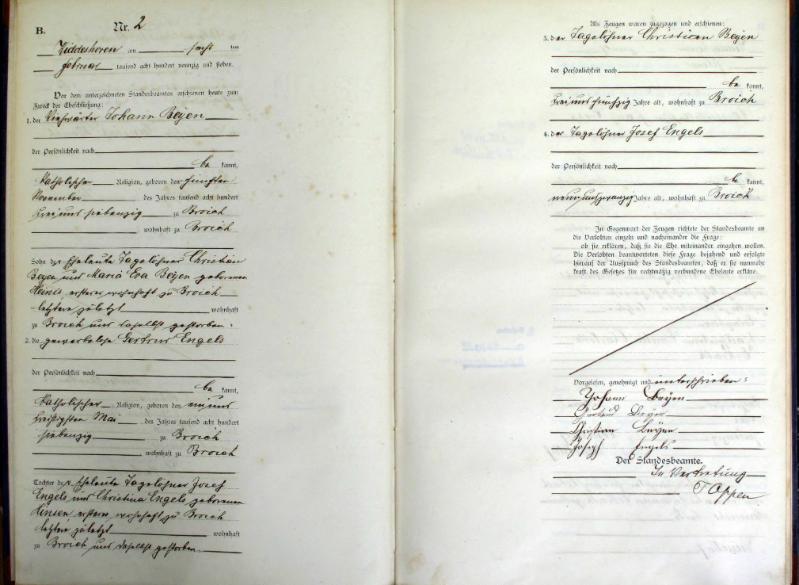 B. Nr. 2
Hiddeshoven am sechs ten
Februar tausend acht hundert neunzig und sieben.
Vor dem unterzeichneten Standesbeamten erschienen heute zum
Zweck der Eheschließung:
1. der Johann Beyen
der Persönlichkeit nach
be kannt,
katholischer Religion, geboren den fünften
November des Jahres tausend acht hundert
drei und siebenzig zu Broich
wohnhaft zu Broich
Sohn der Eheleute Tagelöhner Christian
Beyen und Maria Eva Beyen geborenen
Heinen ersterer wohnhaft zu Broich
letztere zuletzt wohnhaft
zu Broich und daselbst gestorben.
2. die gewerbelose Gertrud Engels
der Persönlichkeit nach
be kannt,
katholischer Religion, geboren den ein und
dreißigsten Mai des Jahres tausend acht hundert
siebenzig zu Broich
wohnhaft zu Broich
Tochter der Eheleute Tagelöhner Josef
Engels und Christina Engels geborenen
ersterer wohnhaft zu Broich
letztere zuletzt wohnhaft
zu Broich und daselbst gestorben.
Als Zeugen waren zugezogen und erschienen:
3. der Tagelöhner Christian Beyen
der Persönlichkeit nach
be kannt,
drei und fünfzig Jahre alt, wohnhaft zu Broich
4. der Tagelöhner Josef Engels
der Persönlichkeit nach
be kannt,
neun und zwanzig Jahre alt, wohnhaft zu Broich
In Gegenwart der Zeugen richtete der Standesbeamte an
die Verlobten einzeln und nacheinander die Frage:
ob sie erklären, daß sie die Ehe miteinander eingehen wollen.
Die Verlobten beantworteten diese Frage bejahend und erfolgte
hierauf der Ausspruch des Standesbeamten, daß er sie nunmehr
kraft des Gesetzes für rechtmäßig verbundene Eheleute erkläre.
Vorgelesen, genehmigt und unterschrieben:
Johann Beyen
Beyen
Christian Beyen
Joseph Engels
Der Standesbeamte.
In Vertretung